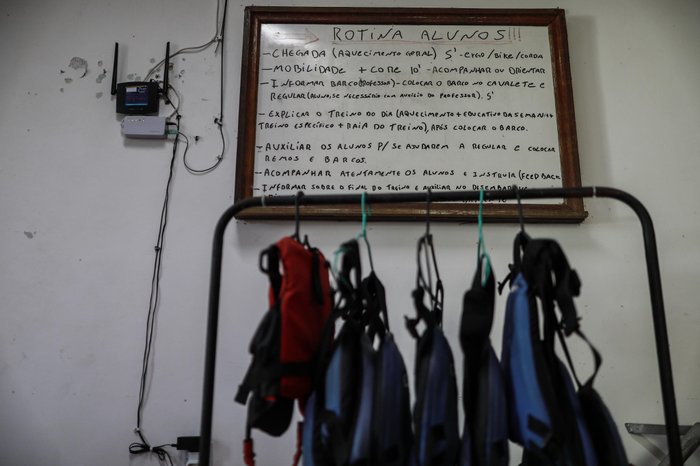 ROTINA ALUNOS!!!
- CHEGADA (AQUECIMENTO GERAL) 5' - ERGO/BIKE/CORDA
- MOBILIDADE + CORE 10' - ACOMPANHAR OU ORIENTAR
- INFORMAR BARCO (PROFESSOR) - COLOCAR O BARCO NO CAVALETE E
REGULAR (ALUNO, SE NECESSÁRIO COM AUXILIO DO PROFESSOR). 5'
- EXPLICAR O TREINO DO DIA (AQUECIMENTO + EDUCATIVO DA SEMANA +
TREINO ESPECÍFICO + RAIA DO TREINO), APÓS COLOCAR O BARCO.
- AUXILIAR OS ALUNOS P/ SE AJUDAREM A REGULAR E COLOCAR
REMOS E BARCOS.
- ACOMPANHAR ATENTAMENTE OS ALUNOS E INSTRUIR (FEEDBACK
- INFORMAR SOBRE O FINAL DO TREINO E AUXILIAR NO DESEMBARQUE